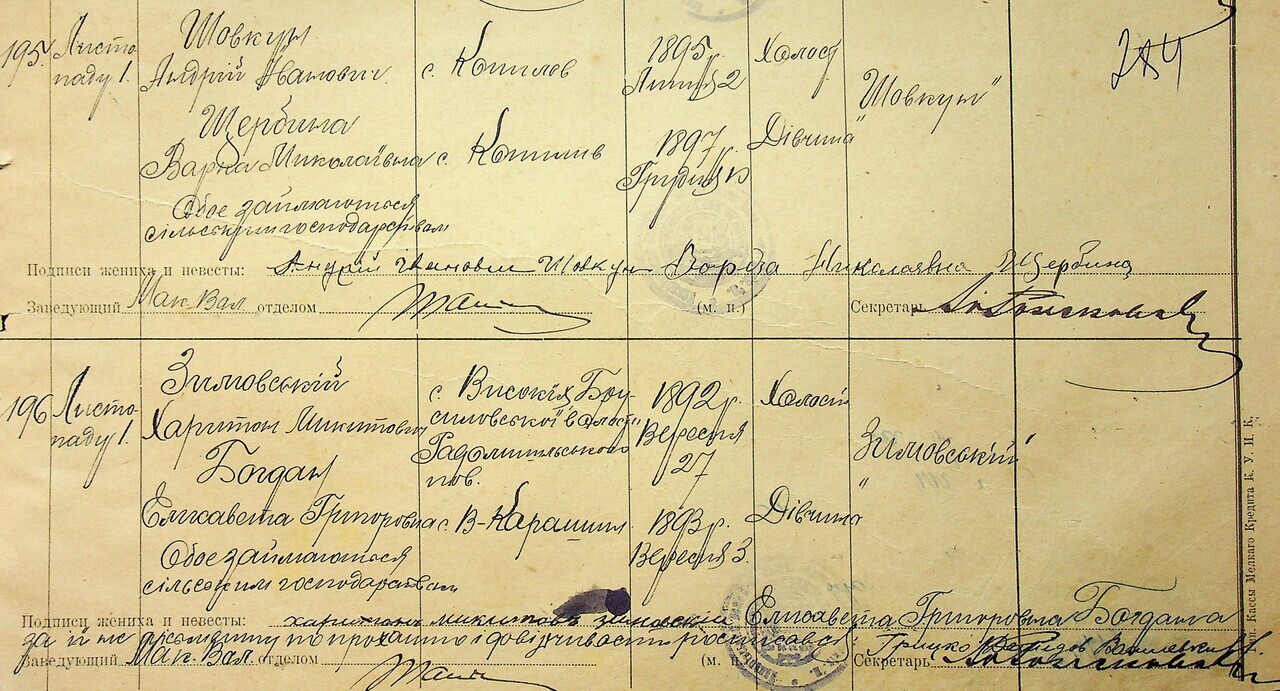 195
Листо
паду 1.
Шовкун
Андрій Іванович
с. Копилов
1895 р.
Липця 2
Холост
"Шовкун"
284
Щербина
Варка Миколаївна
с. Копилив
1897 р.
Грудня
Дівчина
Обое займаються
сільським господарством
Подписи жениха и невесты: Андрий Іванович Шовкун Варка Николаивна Щербина
Заведующий Мак. Вал. отделом
(м. п.)
Секретарь
196
Листо
паду 1.
Зимовський
Харитон Микитович
с. Високія Бру-
силовської волости
Радомишльського
пов.
1892 р.
Вересня
27
Холост
"Зимовський"
Богдан
Елисавета Григоровна
с. В-Карашин
1893 р.
Вересня 3.
Дівчина
Обое займаються
сільским господарством
Подписи жениха и невесты: Харитон Микитов Зимовский Елисавета Григоровна Богдан
за й не росписався Грицко
Заведующий Мак. Вал. отделом
(м. п.)
Секретарь
Кассы Мелкаго Кредита К. У. И. К.